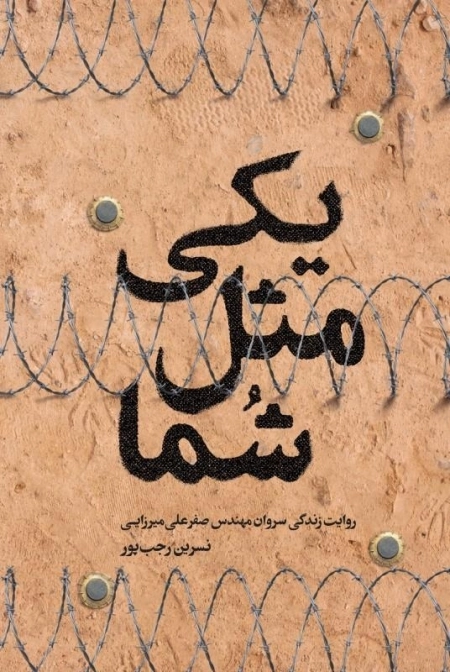 یکی
مثل
شُما
روایت زندگی سروان مهندس صفرعلی میرزایی
نسرین رجب‌پور